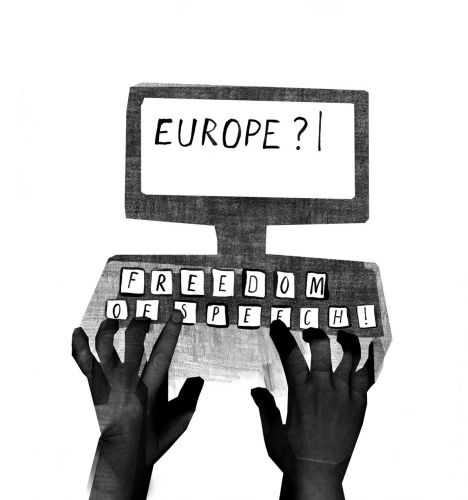 EUROPE?|
FREEDOM
OF SPEECH!